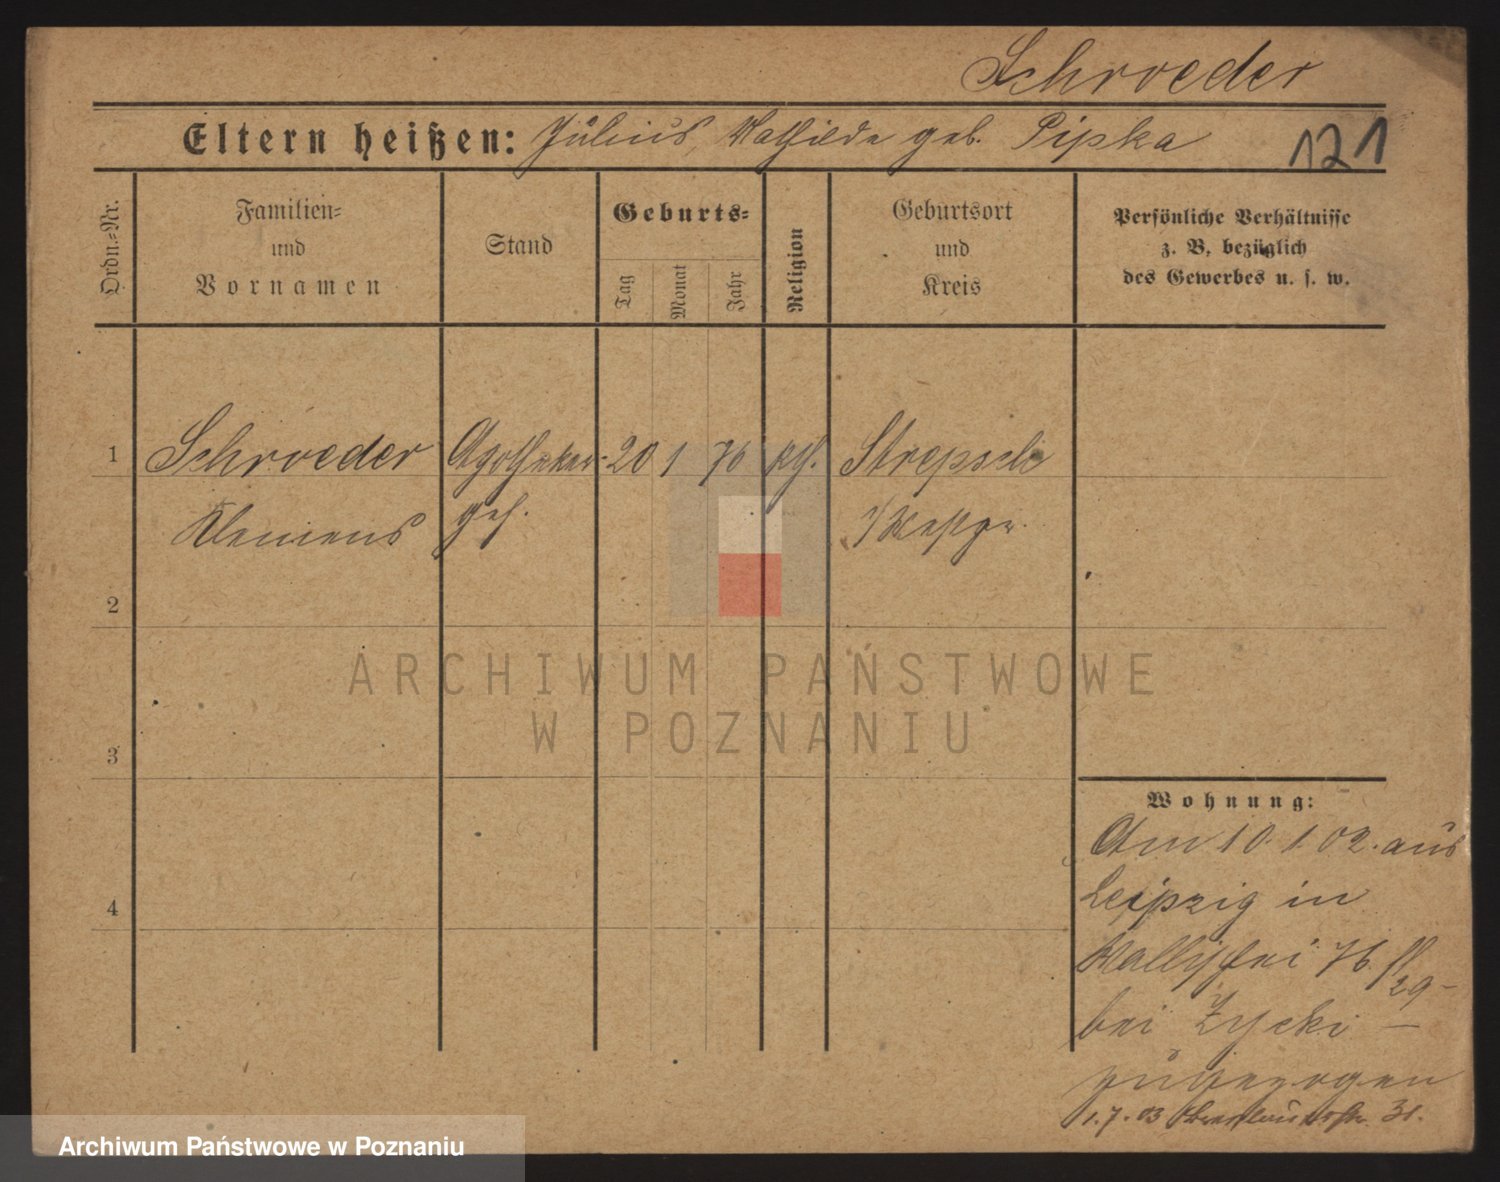 Schroeder
Eltern heißen: Julius, Mathilde geb. Pipka
121
Ordn.-Nr.
Familien-
und
Vornamen
Stand
Geburts-
Tag
Monat
Jahr
Religion
Geburtsort
und
Kreis
Persönliche Verhältnisse
z. B. bezüglich
des Gewerbes u. s. w.
1
Schroeder Apotheker- 20 1 76 kth. Strepsch
Klemens geh. Westpr.
2
3
4
ARCHIWUM PAŃSTWOWE
W POZNANIU
Wohnung:
Am 10.1.02. aus
Leipzig in
Wallischei 76
bei Zycki –
zugezogen
1.7.03 31.
Archiwum Państwowe w Poznaniu